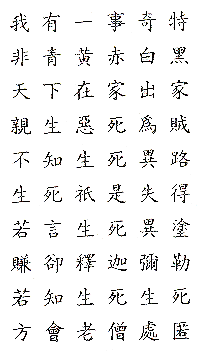 我有一事奇特
非青黃赤白黑
天下在家出家
親生惡死為賊
不知生死異路
生死祇是失得
若言生死異塗
賺卻釋迦彌勒
若知生死生死
方會老僧處匿